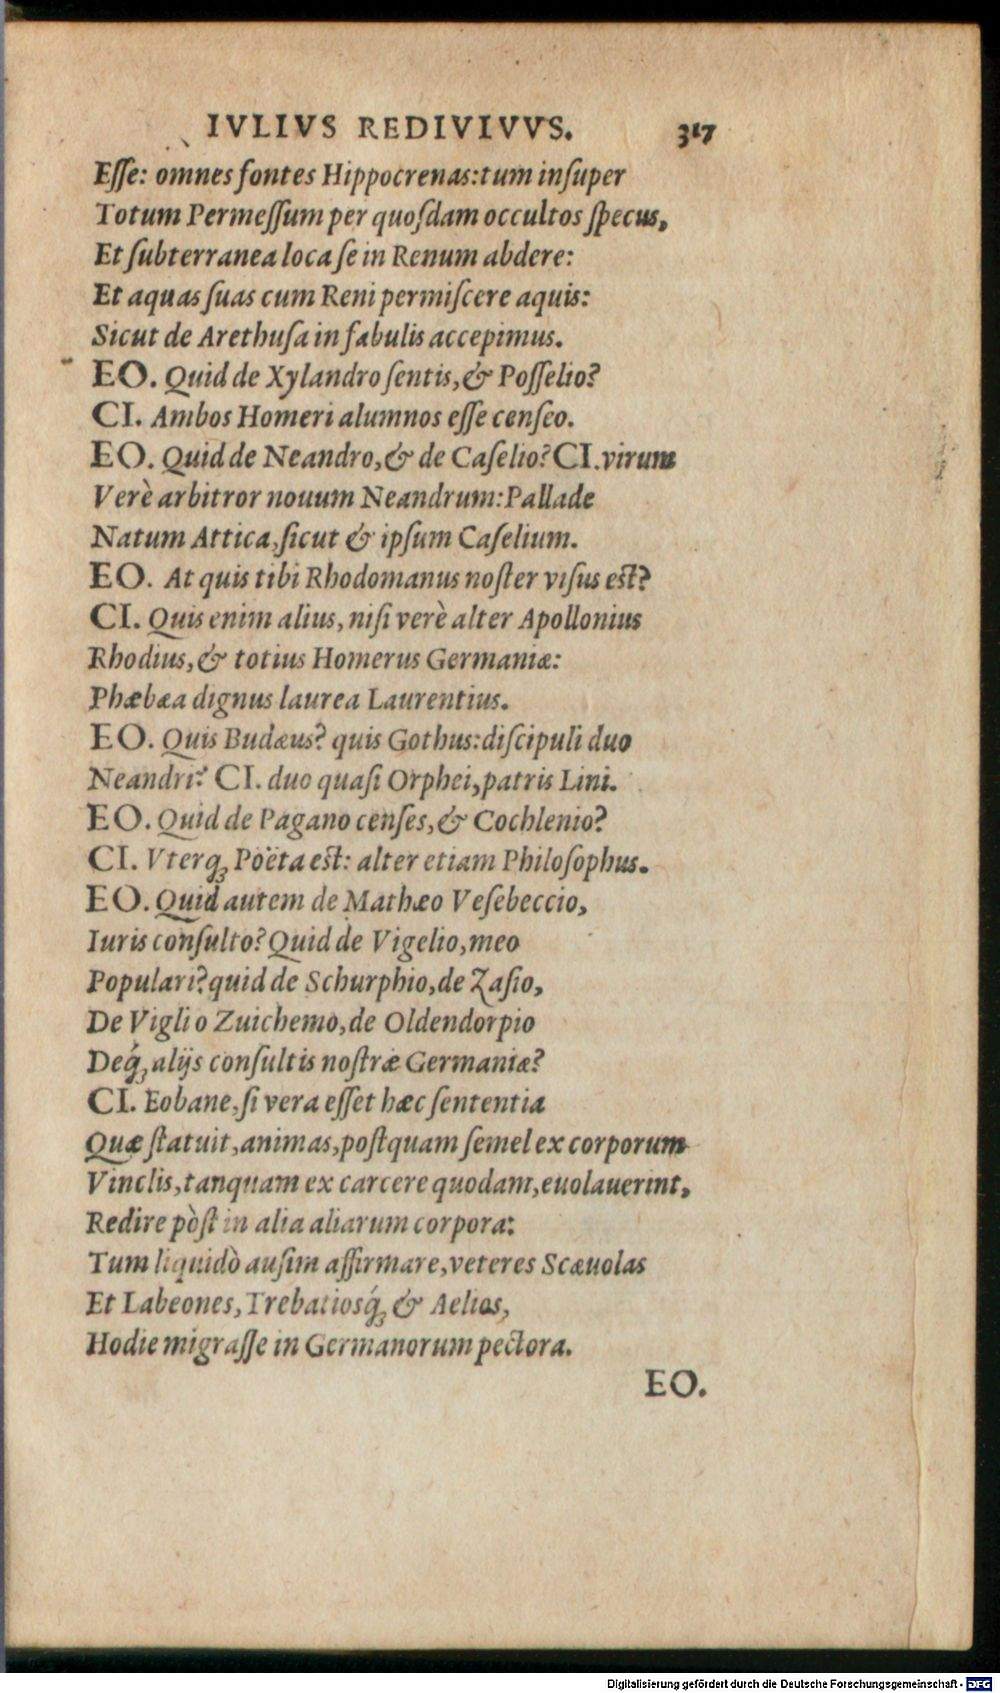 IVLIVS REDIVIVVS. 317
Esse: omnes fontes Hippocrenas: tum insuper
Totum Permessum per quosdam occultos specus,
Et subterranea loca se in Renum abdere:
Et aquas suas cum Reni permiscere aquis:
Sicut de Arethusa in fabulis accepimus.
EO. Quid de Xylandro sentis, & Posselio?
CI. Ambos Homeri alumnos esse censeo.
EO. Quid de Neandro, & de Caselio? CI. virum
Verè arbitror nouum Neandrum: Pallade
Natum Attica, sicut & ipsum Caselium.
EO. At quis tibi Rhodomanus noster visus est?
CI. Quis enim alius, nisi verè alter Apollonius
Rhodius, & totius Homerus Germaniæ:
Phæbæa dignus laurea Laurentius.
EO. Quis Budæus? quis Gothus: discipuli duo
Neandri? CI. duo quasi Orphei, patris Lini.
EO. Quid de Pagano censes, & Cochlenio?
CI. Vterq; Poëta est: alter etiam Philosophus.
EO. Quid autem de Mathæo Vesebeccio,
Iuris consulto? Quid de Vigelio, meo
Populari? quid de Schurphio, de Zasio,
De Viglio Zuichemo, de Oldendorpio
Deq́; alijs consultis nostræ Germaniæ?
CI. Eobane, si vera esset hæc sententia
Quæ statuit, animas, postquam semel ex corporum
Vinclis, tanquam ex carcere quodam, euolauerint,
Redire pòst in alia aliarum corpora:
Tum liquidò ausim affirmare, veteres Scæuolas
Et Labeones, Trebatiosq́; & Aelios,
Hodie migrasse in Germanorum pectora.
EO.
Digitalisierung gefördert durch die Deutsche Forschungsgemeinschaft - DFG